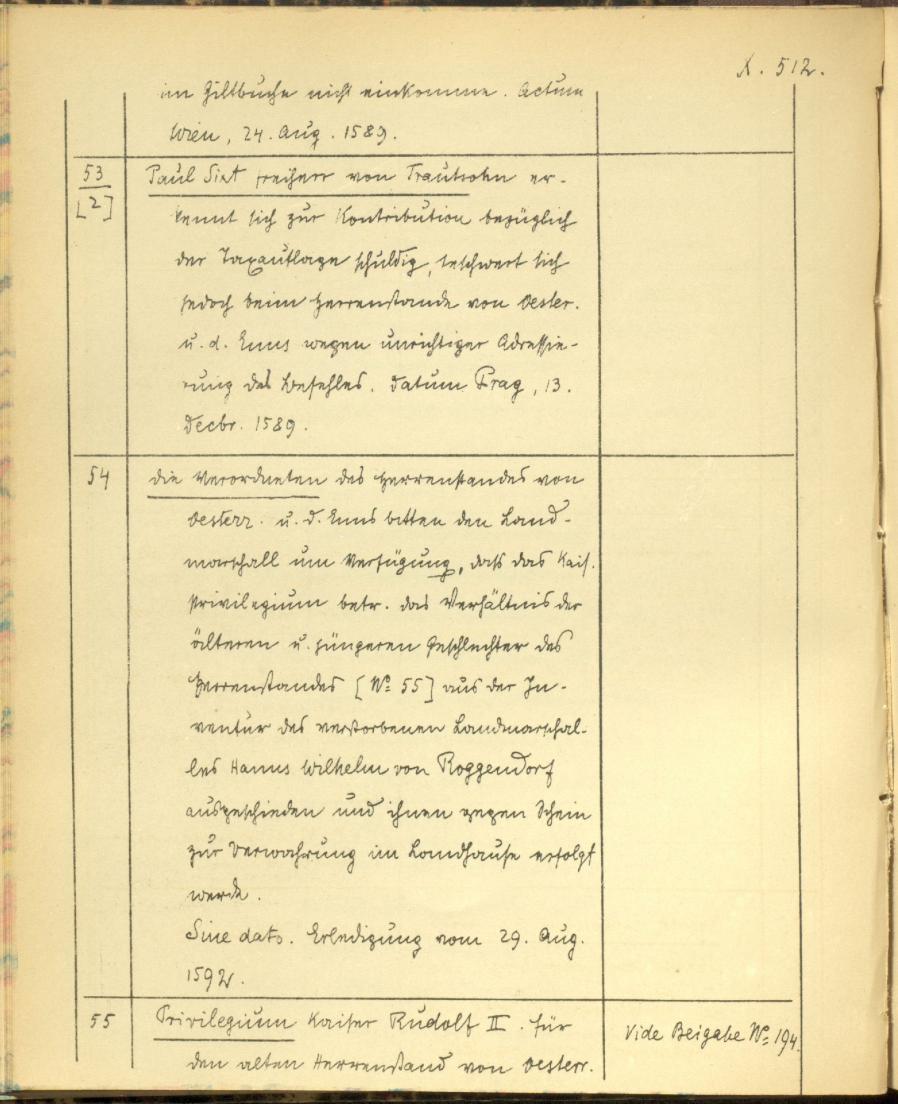 A. 512.
im Giltbuche nicht einkomme. Actum
Wien, 24. Aug. 1589.
53
[2]
Paul Sixt Freiherr von Trautsohn er-
kennt sich zur Kontribution bezüglich
der Taxauflage schuldig, beschwert sich
jedoch beim Herrenstande von Oester.
u. d. Enns wegen unrichtiger Adressie-
rung des Befehles. Datum Prag, 13.
Decbr. 1589.
54
Die Verordneten des Herrenstandes von
Oesterr. u. d. Enns bitten den Land-
marschall um Verfügung, dass das Kais.
Privilegium betr. das Verhältnis der
älteren u. jüngeren Geschlechter des
Herrenstandes [No 55] aus der In-
ventur des verstorbenen Landmarschal-
les Hanns Wilhelm von Roggendorf
ausgeschieden und ihnen gegen Schein
zur Verwahrung im Landhause erfolgt
werde.
Sine dato. Erledigung vom 29. Aug.
1592.
55
Privilegium Kaiser Rudolf II. für
den alten Herrenstand von Oesterr.
Vide Beigabe No 194.